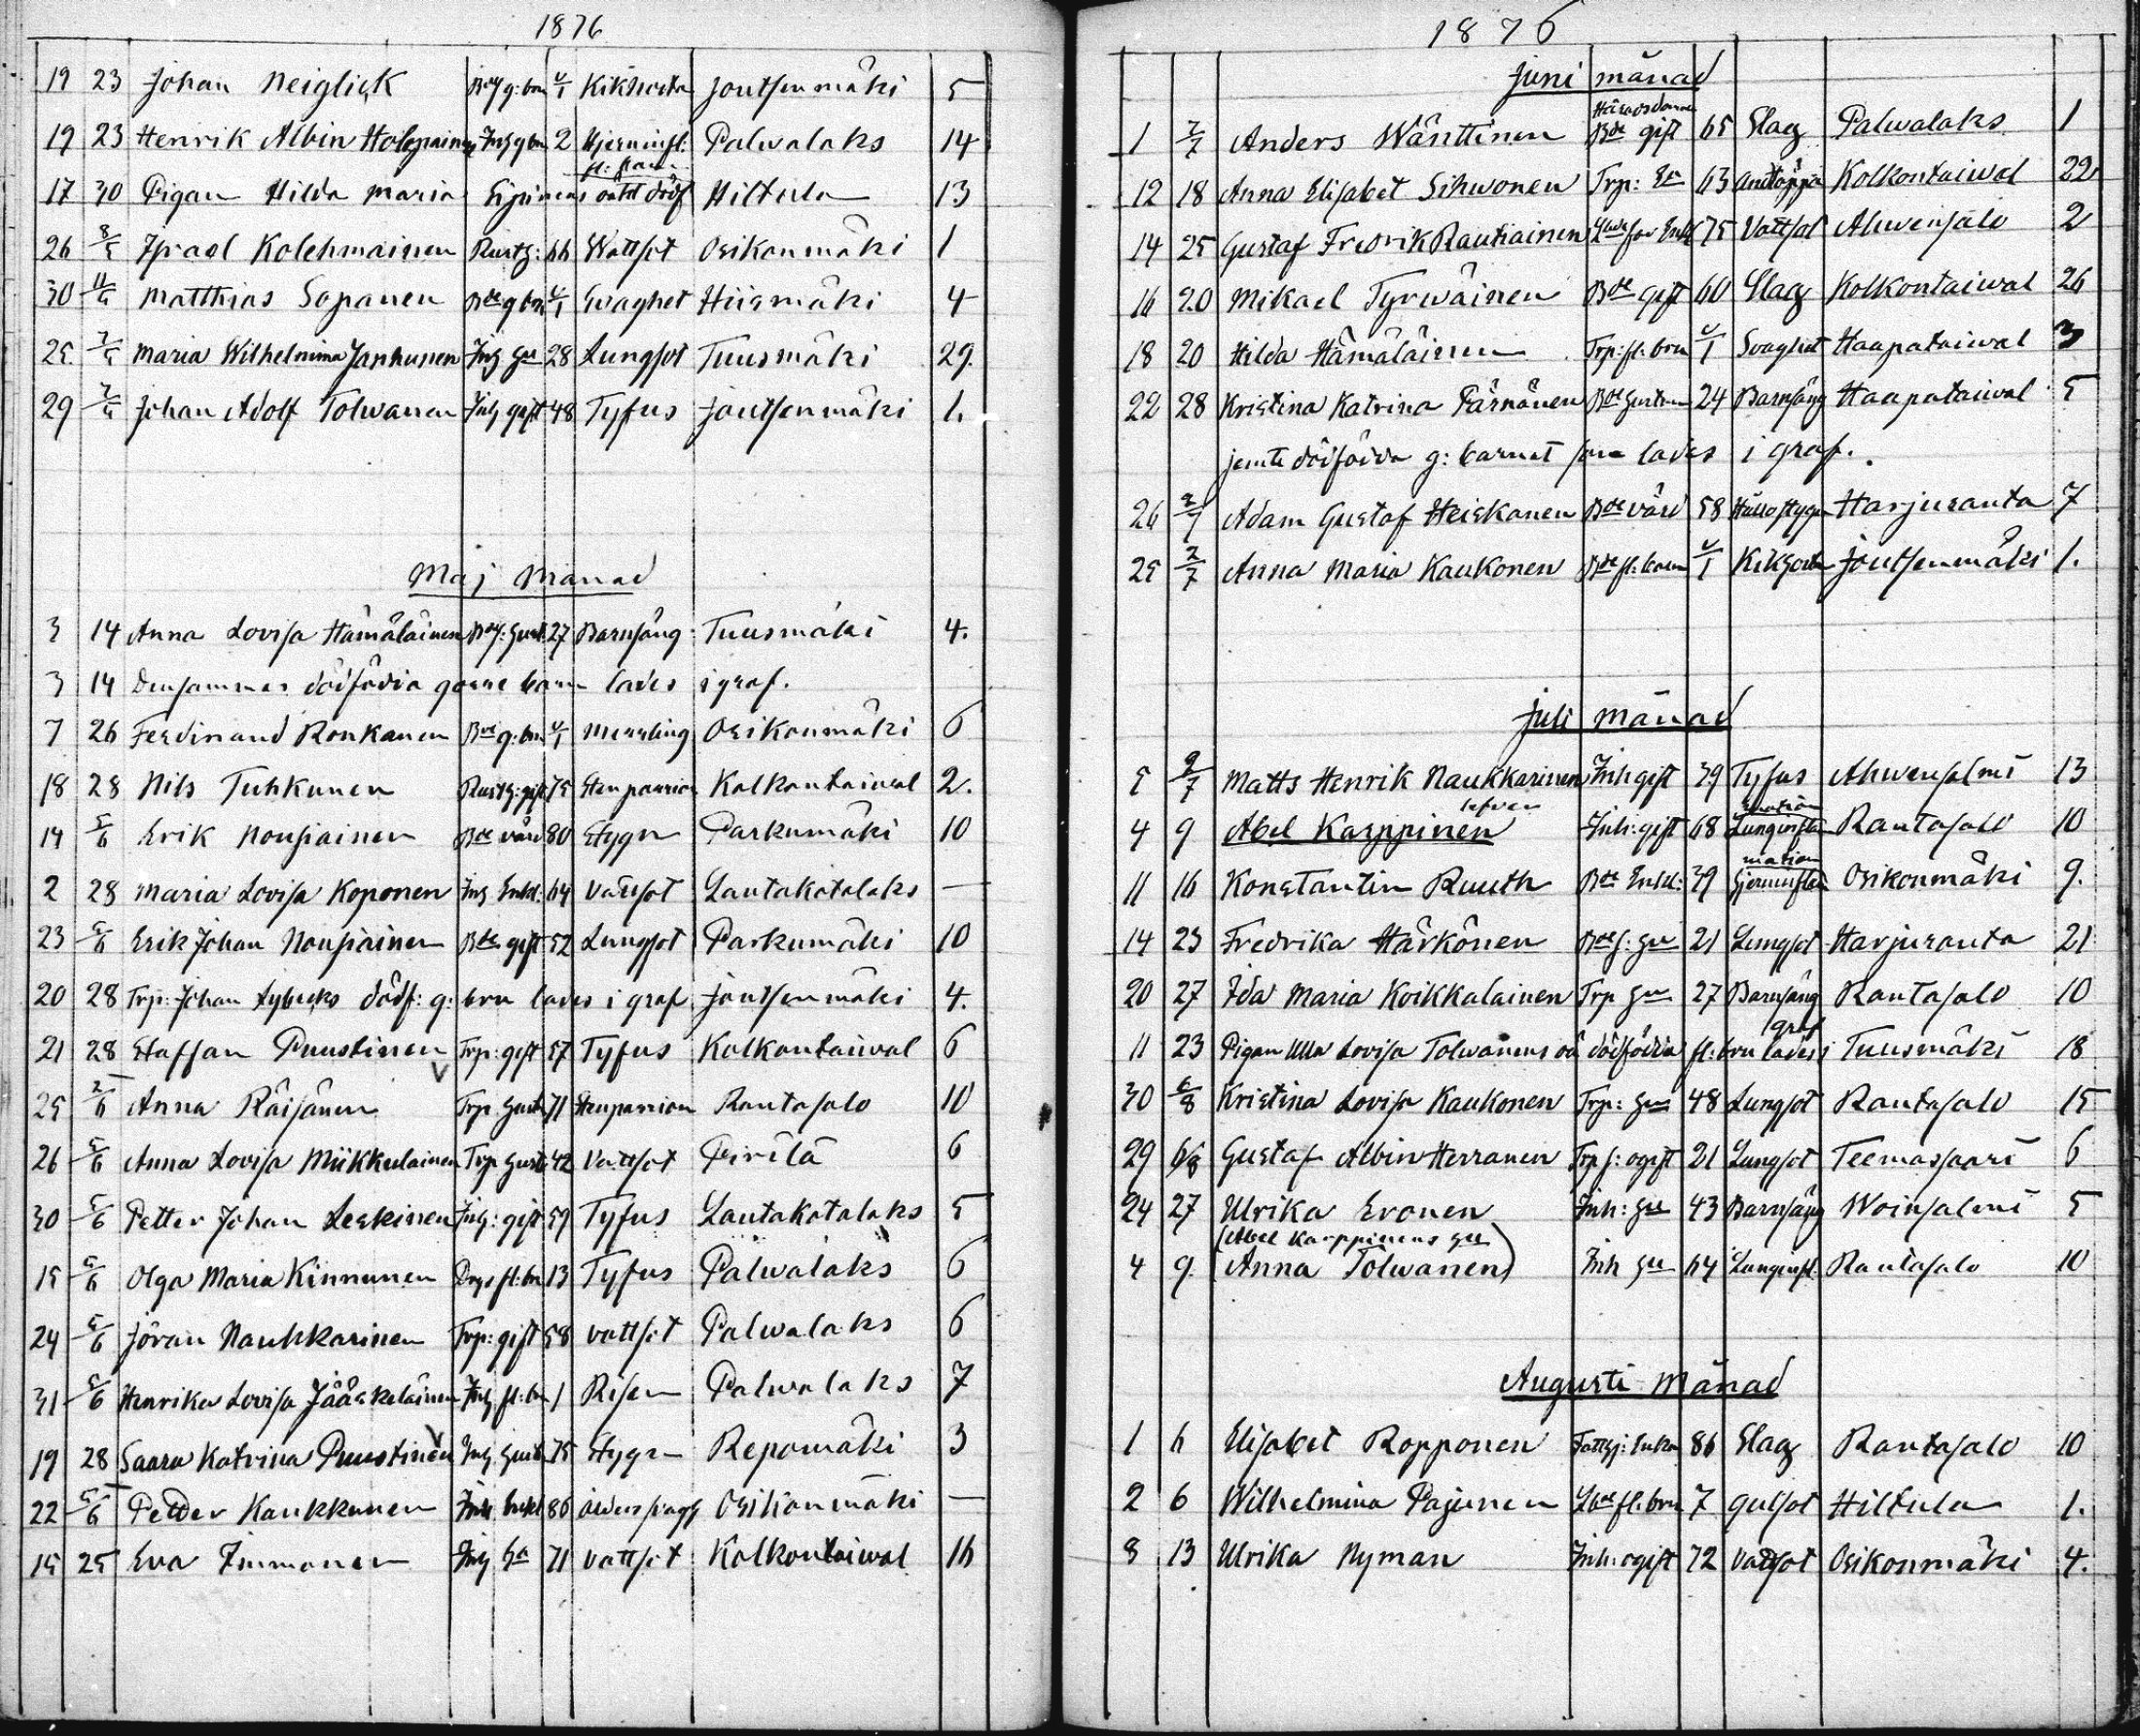 1876
19 23 Johan Neiglick g: bn u/1 Kikhosta Joutsenmäki 5
19 23 Henrik Albin Holopainen Inh g bn 2 Hjerninfl: Palvalaks 14
17 30 Pigan Hilda Maria dödf Hiltula 13
26 8/5 Israel Kolehmainen Rustg: 66 Wattsot Osikonmäki 1
30 Matthias Sapanen Bde g bn u/1 Svaghet Hiismäki 4
25. Maria Wilhelmina Janhunen Inh Hu 28 Lungsot Tuusmäki 29.
29 Johan Adolf Tolwanen Inh gift 48 Tyfus Joutsenmäki 1.
Maj Månad
3 14 Anna Lovisa Hämäläinen 27 Barnsäng Tuusmäki 4.
3 14 Densammas dödfödda gosse barn lades i graf.
7 26 Ferdinand Ronkanen Bde g: bn u/1 Messling Osikonmäki 6
18 28 Nils Tuhkunen Rustg: gift 75 Kolkontaiwal 2.
14 5/6 Erik Nousiainen Bde 80 Stygn Parkumäki 10
2 28 Maria Lovisa Koponen Inh Enkl. 64 Vattsot Lautakotalaks —
23 5/6 Erik Johan Nousiainen Bde gift 52 Lungsot Parkumäki 10
20 28 Trp: Johan Lybecks dödf: g: brn lades i graf Joutsenmäki 4.
21 28 Staffan Puustinen Trp: gift 57 Tyfus Kolkontaiwal 6
25 2/6 Anna Räisänen Trp 71 Rantasalo 10
26 5/6 Anna Lovisa Miikkulainen Trp 42 Vattsot Pirilä 6
30 5/6 Petter Johan Leskinen Inh: gift 59 Tyfus Lautakotalaks 5
15 5/6 Olga Maria Kinnunen fl: bn 13 Tyfus Palvalaks 6
24 5/6 Jöran Naukkarinen Trp: gift 58 vattsot Palvalaks 6
31 5/6 Henrika Lovisa Jääskeläinen Inh fl: bn 1 Risen Palvalaks 7
19 28 Saara Katrina Puustinen Inh 75 Stygn Repomäki 3
22 5/6 Petter Kaukkunen Inh Enkl 86 Osikonmäki —
15 25 Eva Immonen Inh 71 vattsot Kolkontaiwal 16
1876
Juni månad
Häradsdomar
1 7/7 Anders Wänttinen Bde gift 65 Slag Palvalaks 1
12 18 Anna Elisabet Sihvonen Trp: 63 Kolkontaiwal 22
14 25 Gustaf Fredrik Rautiainen Enkl 75 Vattsot Ahvensalo 2
16 20 Mikael Tyrwäinen Bde gift 60 Slag Kolkontaiwal 26
18 20 Hilda Hämäläinen Trp: fl: brn u/1 Svaghet Haapataiwal 3
22 28 Kristina Katrina Pärnänen Bde hustru 24 Barnsäng Haapataiwal 5
jemte dödfödda g: barnet som lades i graf.
26 2/7 Adam Gustaf Heiskanen Bde värd 58 Harjuranta 7
25 2/7 Anna Maria Kaukonen Bde fl: barn u/1 Kikhosta Joutsenmäki 1.
Juli månad
5 9/7 Matts Henrik Naukkarinen Inh gift 39 Tyfus Ahvensalmi 13
4 9 Abel Karppinen Inh: gift 68 Lunginflamation Rantasalo 10
11 16 Konstantin Ruuth Bde Enkl: 39 Hjerninflamation Osikonmäki 9.
14 23 Fredrika Härkönen 21 Lungsot Harjuranta 21
20 27 Ida Maria Koikkalainen Trp Hu 27 Barnsäng Rantasalo 10
11 23 Pigan Ulla Lovisa Tolwanens oä dödfödda fl: brn lades i graf Tuusmäki 18
30 6/8 Kristina Lovisa Kaukonen Trp: Hu 48 Lungsot Rantasalo 15
29 6/8 Gustaf Albin Herranen Trp s: ogift 21 Lungsot Teemassaari 6
24 27 Ulrika Eronen Inh: Hu 43 Barnsäng Woinsalmi 5
(Abel Karppinens Hu
4 9. Anna Tolwanen) Inh Hu 64 Lunginfl. Rantasalo 10
Augusti Månad
1 6 Elisabet Ropponen Fattighj: Enka 86 Slag Rantasalo 10
2 6 Wilhelmina Pajunen fl: brn 7 gulsot Hiltula 1.
8 13 Ulrika Nyman Inh: ogift 72 Vattsot Osikonmäki 4.